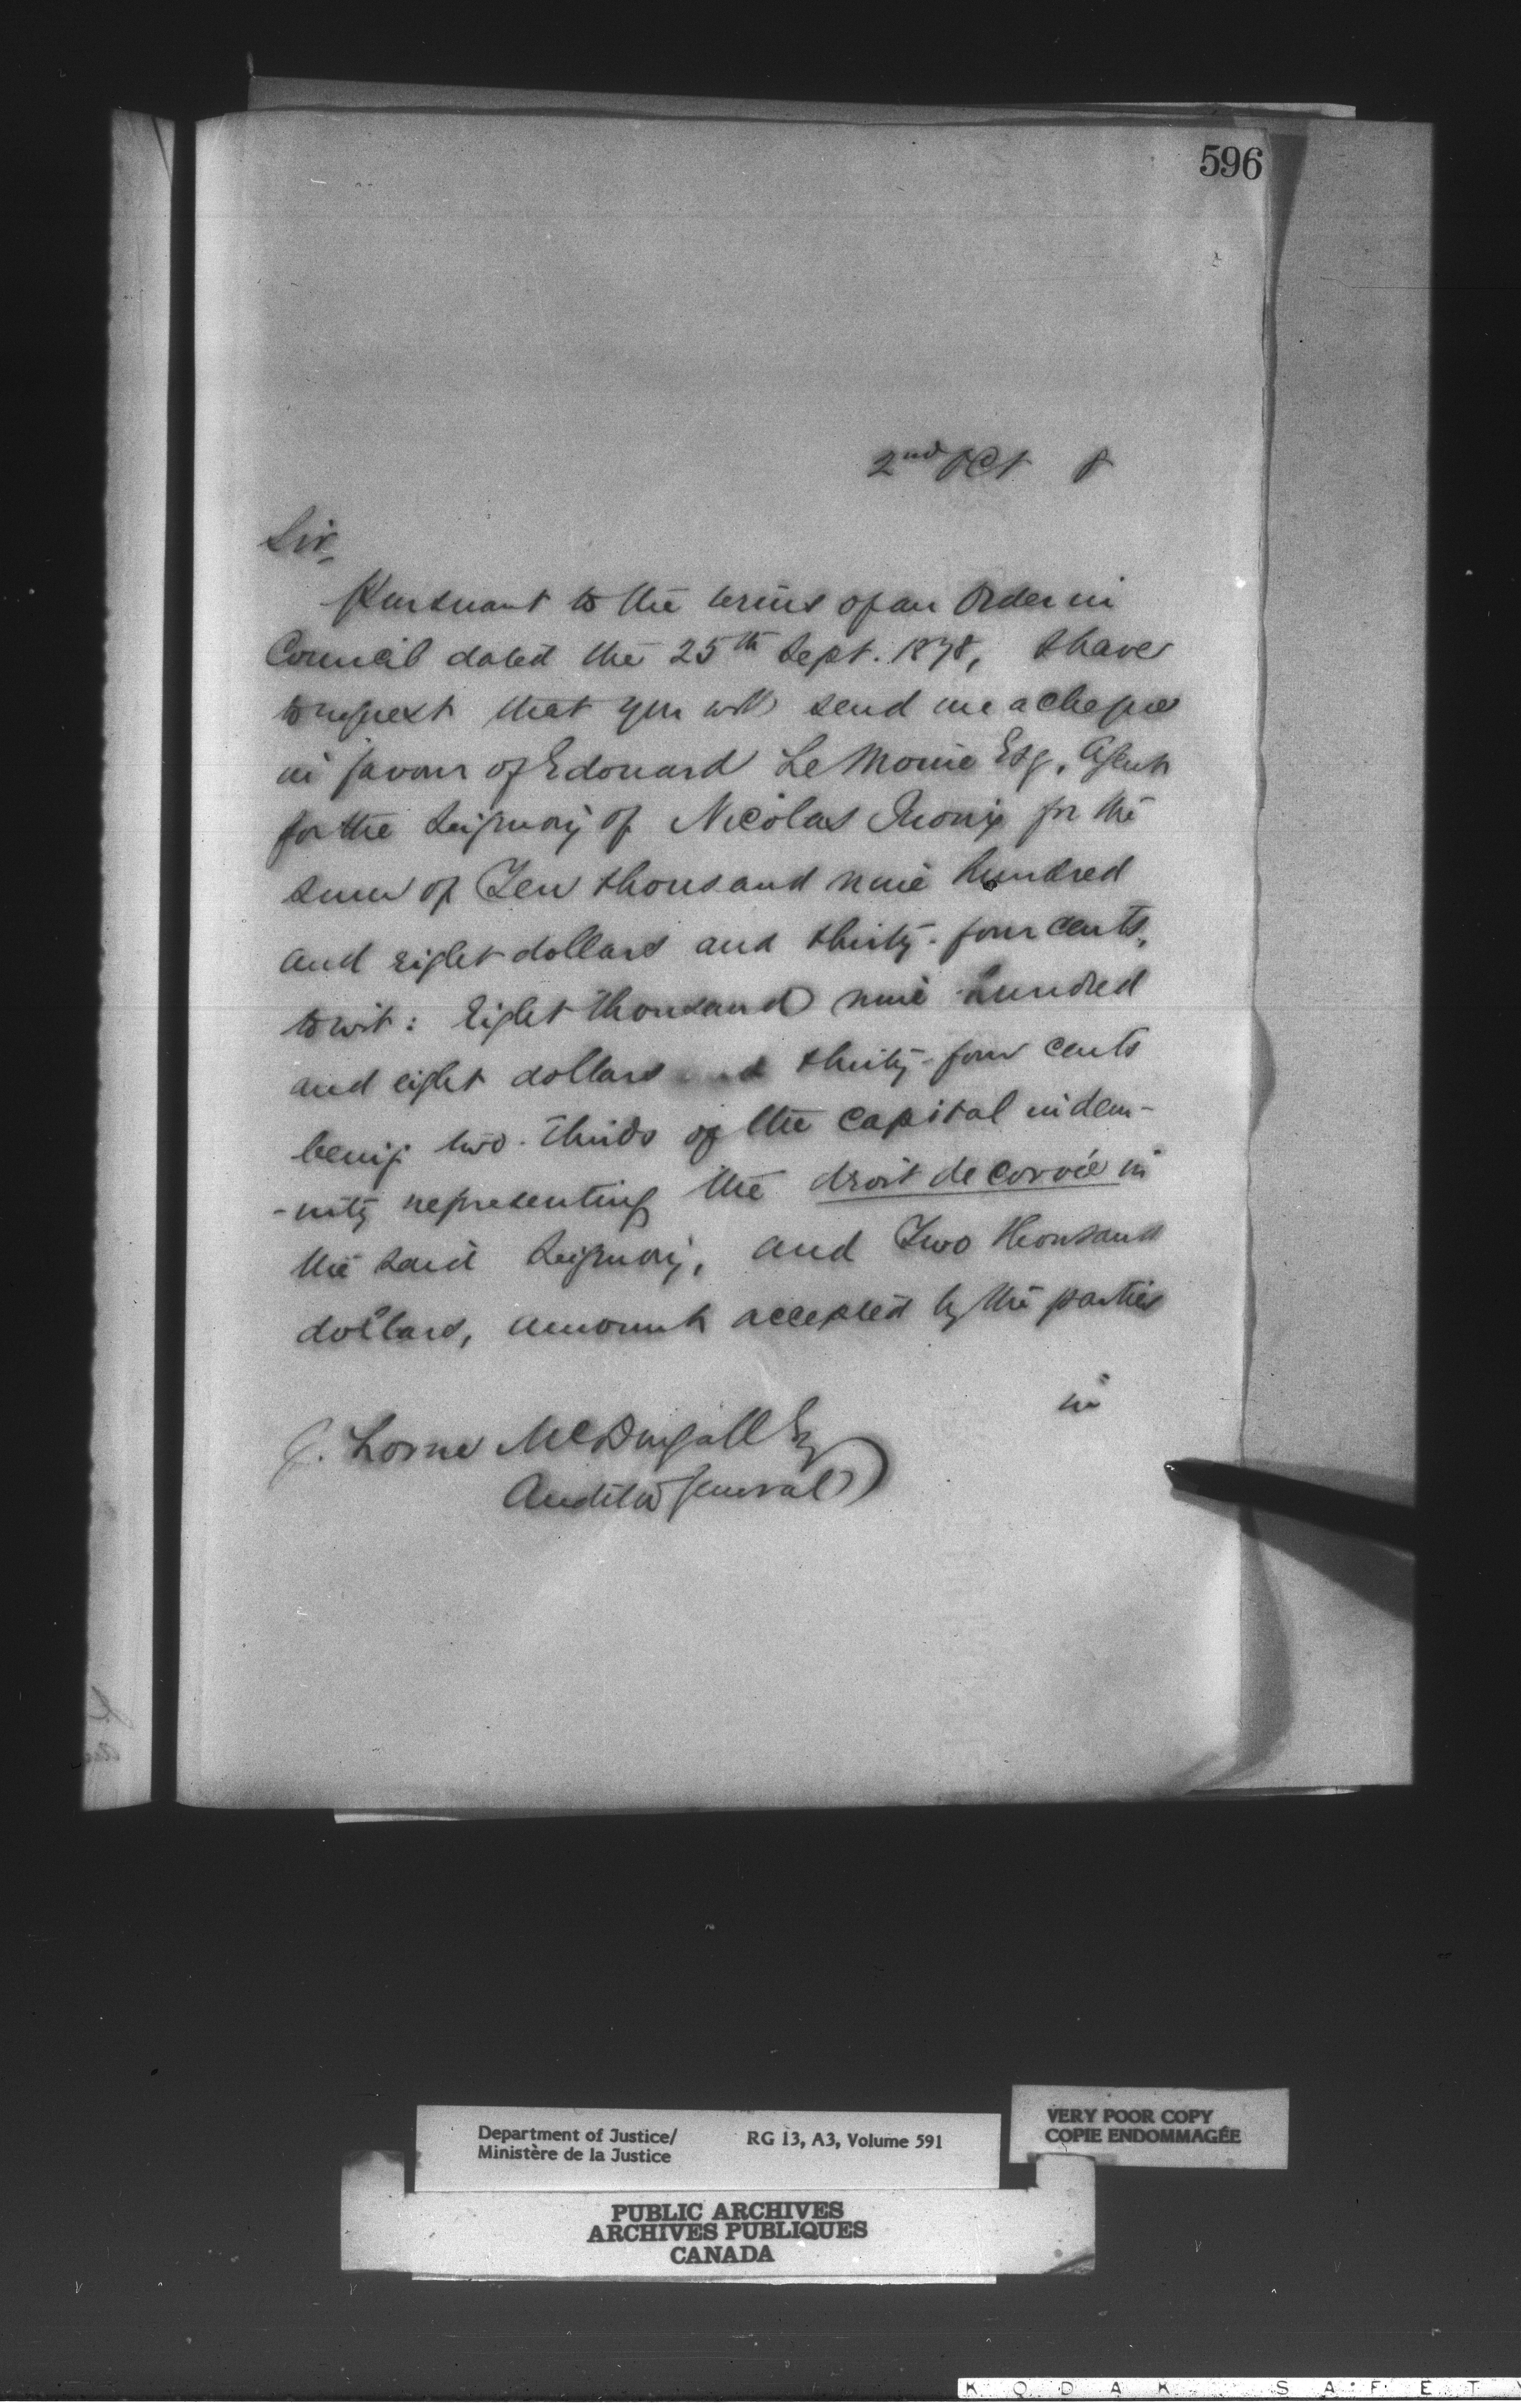 596
2nd Oct 8
Sir,
Pursuant to the terms of an Order in
Council dated the 25th Sept. 1878, I have
to request that you will send me a cheque
in favour of Edouard LeMoine Esq, Agent
for the Seigniory of Nicolas Rioux for the
sum of Ten thousand nine hundred
and eight dollars and thirty-four cents,
to wit: Eight thousand nine hundred
and eight dollars and thirty-four cents
being two-thirds of the capital indem-
-nity representing the droit de corvée in
the said Seigniory, and Two thousand
dollars, amount accepted by the parties
in
J. Lorne McDougall Esq
Auditor General
Department of Justice/
Ministère de la Justice
RG 13, A3, Volume 591
VERY POOR COPY
COPIE ENDOMMAGÉE
PUBLIC ARCHIVES
ARCHIVES PUBLIQUES
CANADA
KODAK SAFETY